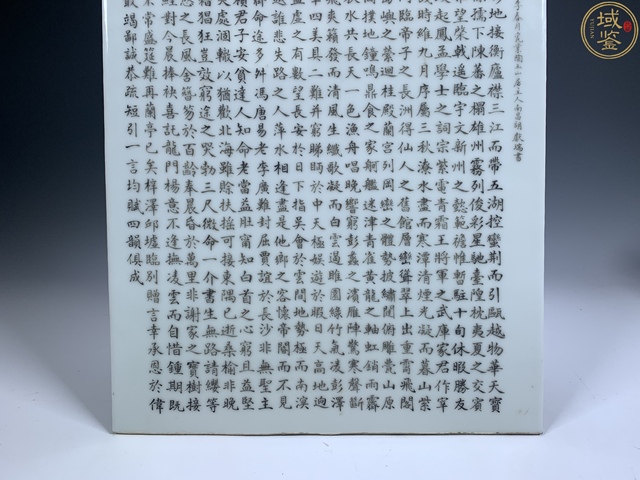 域鉴
YUJIAN
瓷業陶玉山居主人南昌胡獻瑞書
地接衡廬襟三江而帶五湖控蠻荊而引甌越物華天寶
孺下陳蕃之榻雄州霧列俊彩星馳臺隍枕夷夏之交賓
望棨戟遙臨宇文新州之懿範襜帷暫駐十旬休暇勝友
起鳳孟學士之詞宗紫電青霜王將軍之武庫家君作宰
時維九月序屬三秋潦水盡而寒潭清煙光凝而暮山紫
臨帝子之長洲得仙人之舊館層巒聳翠上出重霄飛閣
嶼之縈迴桂殿蘭宮列岡巒之體勢披繡闥俯雕甍山原
撲地鐘鳴鼎食之家舸艦迷津青雀黃龍之舳虹銷雨霽
秋水共長天一色漁舟唱晚響窮彭蠡之濱雁陣驚寒聲斷
爽籟發而清風生纖歌凝而白雲遏睢園綠竹氣凌彭澤
四美具二難并窮睇眄於中天極娛遊於暇日天高地迥
盈虛之有數望長安於日下指吳會於雲間地勢極而南溟
誰悲失路之人萍水相逢盡是他鄉之客懷帝閽而不見
命途多舛馮唐易老李廣難封屈賈誼於長沙非無聖主
君子安貧達人知命老當益壯甯知白首之心窮且益堅
處涸轍以猶歡北海雖賒扶搖可接東隅已逝桑榆非晚
猖狂豈效窮途之哭勃三尺微命一介書生無路請纓等
愨之長風舍簪笏於百齡奉晨昏於萬里非謝家之寶樹接
對今晨捧袂喜託龍門楊意不逢撫凌雲而自惜鍾期既
常盛筵難再蘭亭已矣梓澤邱墟臨別贈言幸承恩於偉
竭鄙誠恭疏短引一言均賦四韻俱成